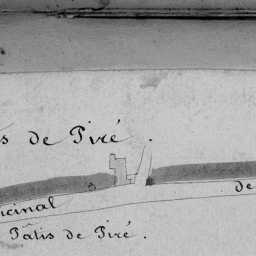 s de Piré .
icinal de
Pâtis de Piré .